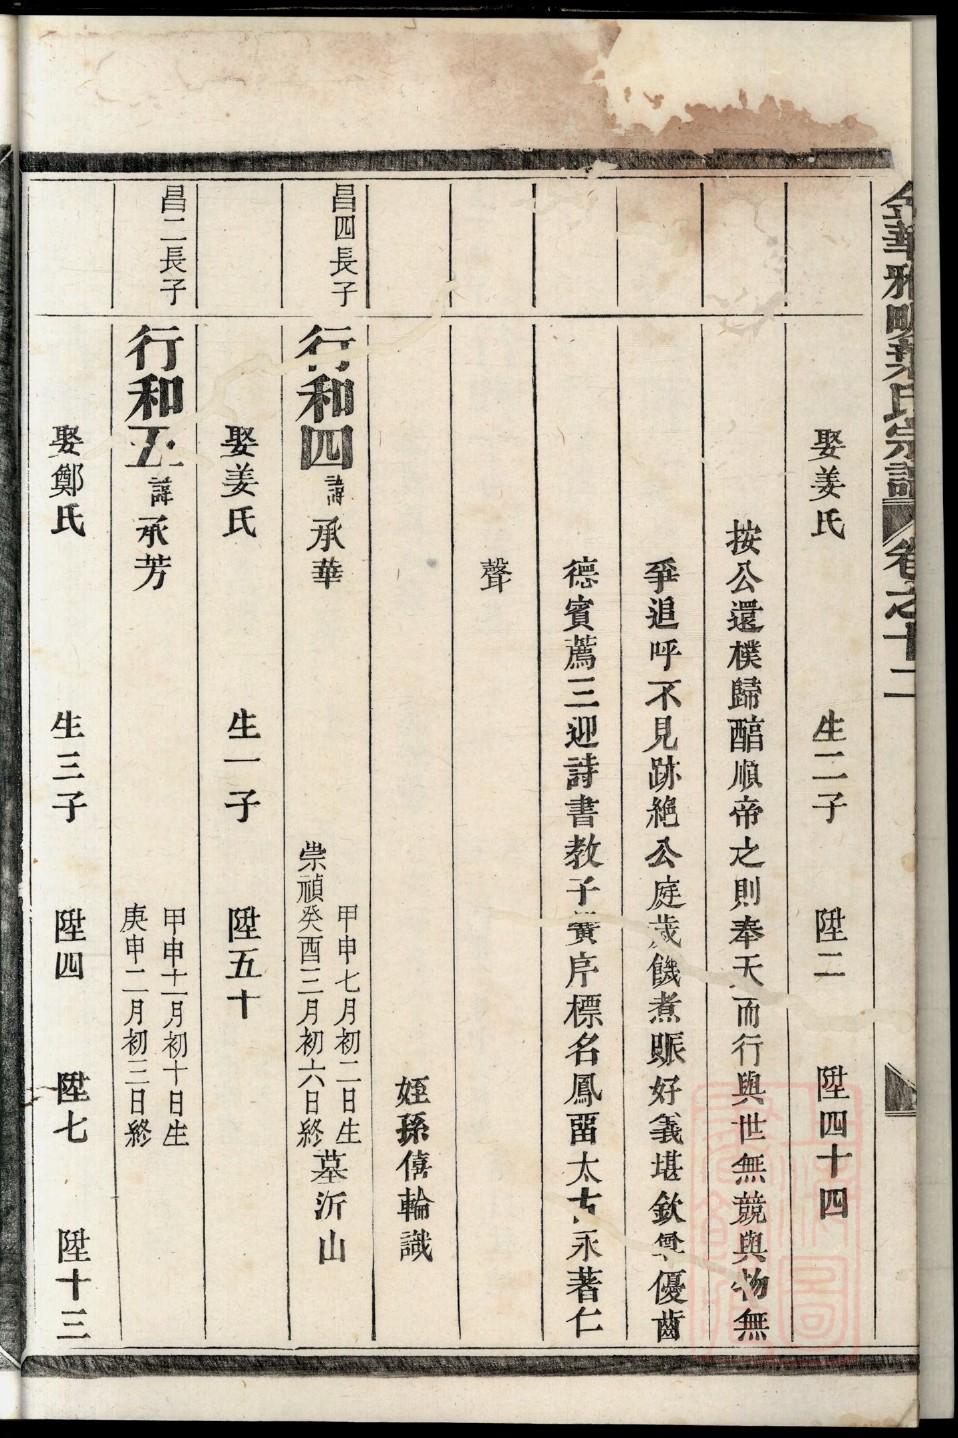 金華雅畈葉氏宗譜 卷之十二
娶姜氏 生二子 陞二 陞四十四
按公還樸歸醕順帝之則奉天而行與世無競與物無
爭追呼不見跡絶公庭歲饑煮賑好義堪欽爵優齒
德賓薦三迎詩書教子黌序標名鳳畱太古永著仁
聲
姪孫僖輪識
昌四長子
行和四 諱承華 甲申七月初二日生
崇禎癸酉三月初六日終 墓沂山
娶姜氏 生一子 陞五十
昌二長子
行和五 諱承芳 甲申十一月初十日生
庚申二月初三日終
娶鄭氏 生三子 陞四 陞七 陞十三